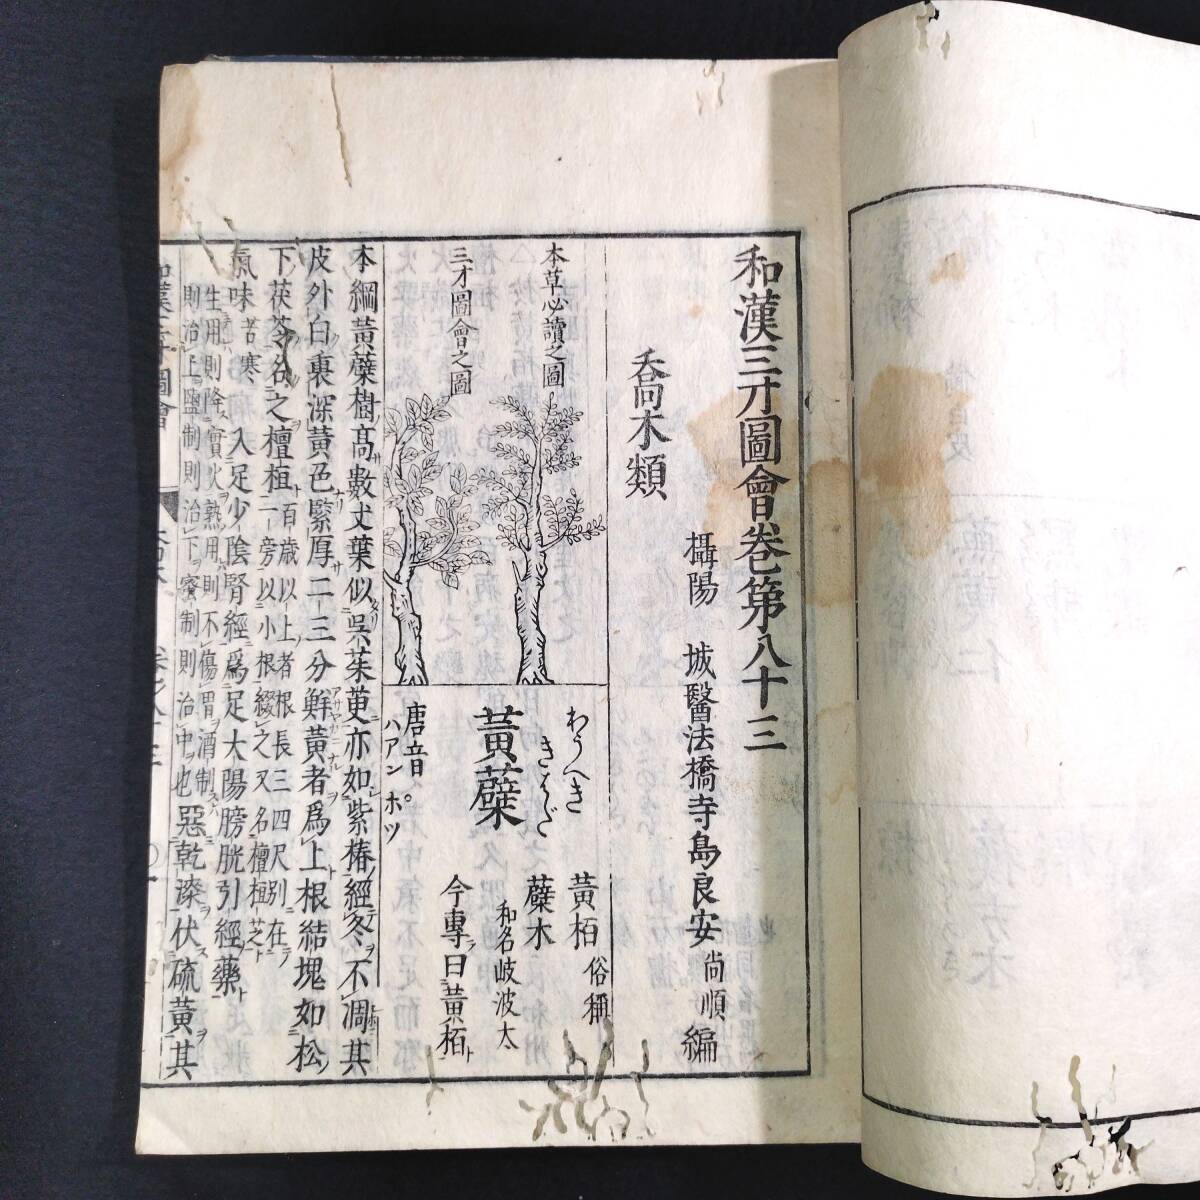 和漢三才圖會巻第八十三
攝陽 城醫法橋寺島良安尚順編
喬木類
本草必讀之圖
三才圖會之圖
わうへき
きはだ
黃蘗
唐音
ハアンポツ
黃栢 俗稱
蘗木
和名岐波太
今專曰黃栢
本綱黃蘗樹髙數丈葉似吳茱萸亦如紫椿經冬不凋其
皮外白裏深黃色緊厚二三分鮮黃者爲上根結塊如松
下茯苓名之檀桓 百歲以上者根長三四尺別在
一旁以小根綴之又名檀桓芝
氣味苦寒 入足少陰腎經爲足太陽膀胱引經藥
生用則降實火熟用則不傷胃酒制
則治上鹽制則治下蜜制則治中也 惡乾漆伏硫黃其